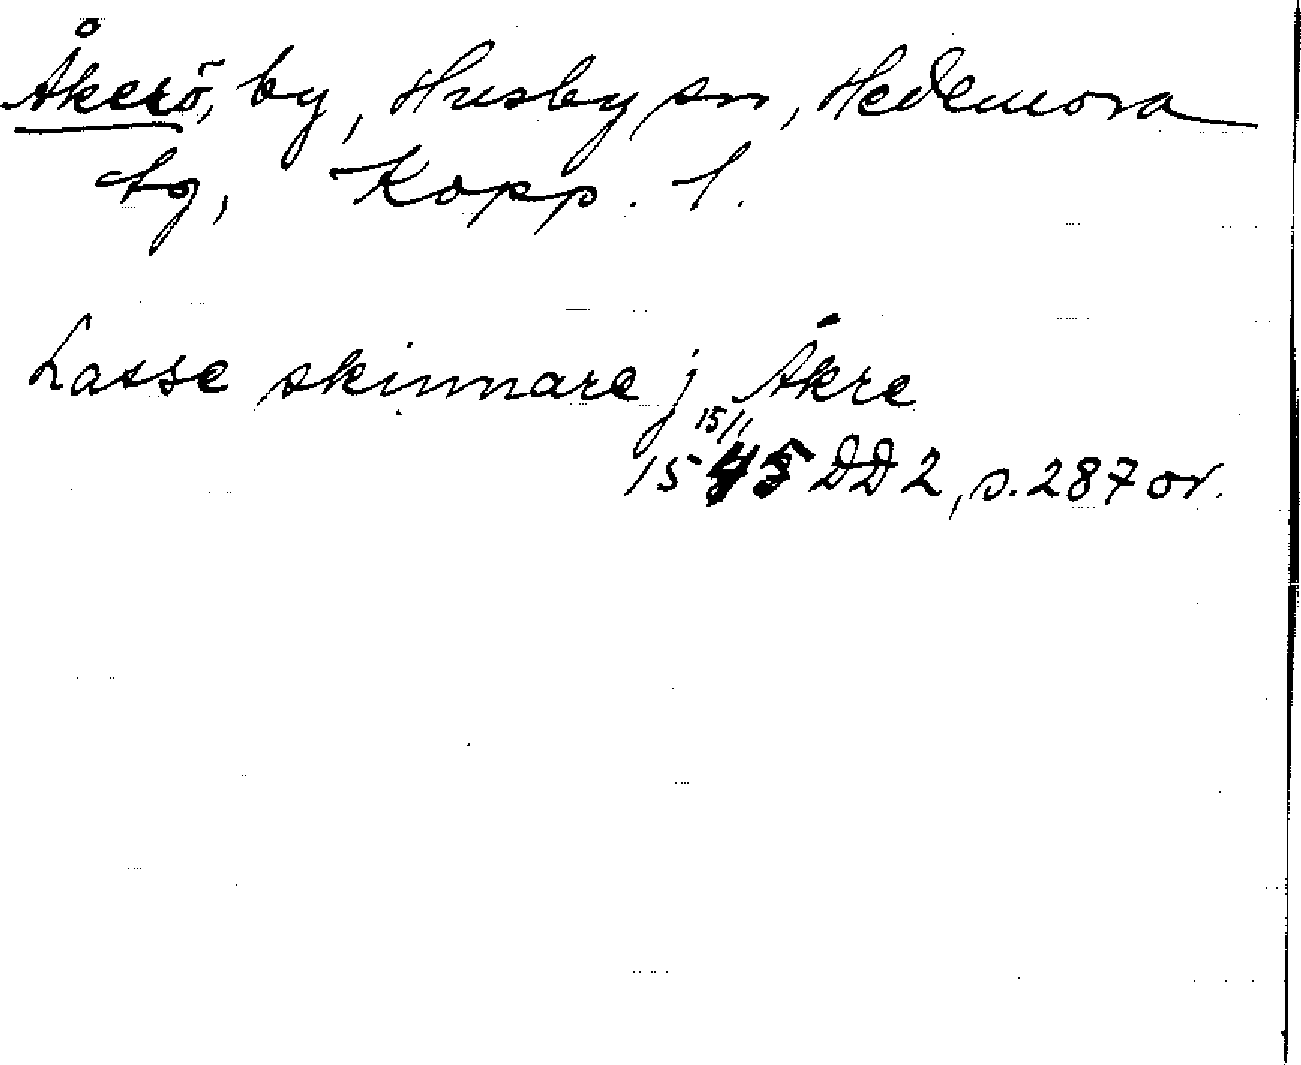 Åkerö, by, Husby sn, Hedemora
tg, Kopp. l.
Lasse skinnare j Åkre
15/1
1545 DD 2, s. 287 or.